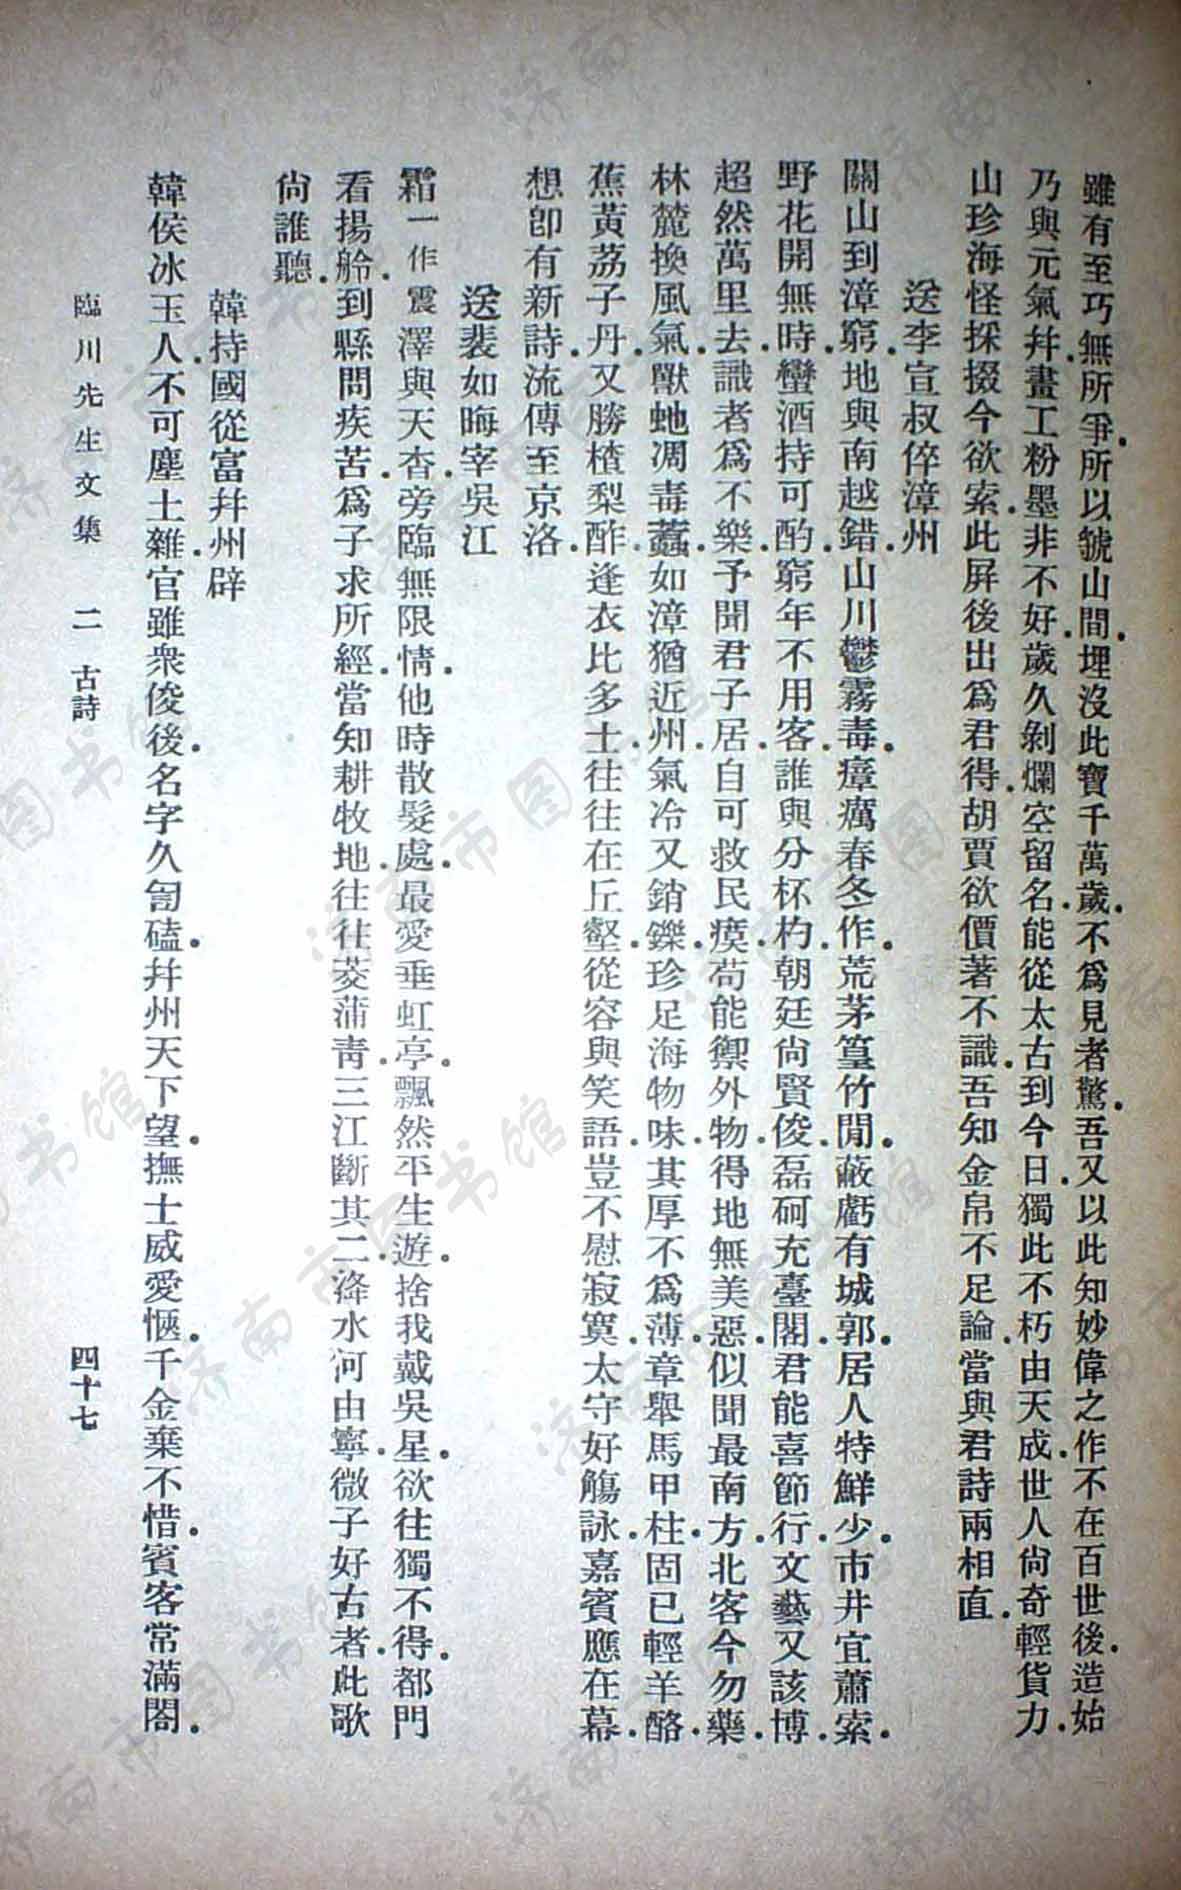 雖有至巧無所爭所以虢山間埋沒此寶千萬歲不爲見者驚吾又以此知妙偉之作不在百世後造始
乃與元氣幷畫工粉墨非不好歲久剝爛空留名能從太古到今日獨此不朽由天成世人尙奇輕貨力
山珍海怪採掇今欲索此屏後出爲君得胡賈欲價著不識吾知金帛不足論當與君詩兩相直
送李宣叔倅漳州
關山到漳窮地與南越錯山川鬱霧毒瘴癘春冬作荒茅篁竹閒蔽虧有城郭居人特鮮少市井宜蕭索
野花開無時蠻酒持可酌窮年不用客誰與分杯杓朝廷尙賢俊磊砢充臺閣君能喜節行文藝又該博
超然萬里去識者爲不樂予聞君子居自可救民瘼苟能禦外物得地無美惡似聞最南方北客今勿藥
林麓換風氣獸虵凋毒蠚如漳猶近州氣冷又銷鑠珍足海物味其厚不爲薄章舉馬甲柱固已輕羊酪
蕉黃荔子丹又勝樝梨酢逢衣比多士往往在丘壑從容與笑語豈不慰寂寞太守好觴詠嘉賓應在幕
想卽有新詩流傳至京洛
送裴如晦宰吳江
霜一作震澤與天杳旁臨無限情他時散髮處最愛垂虹亭飄然平生遊捨我戴吳星欲往獨不得都門
看揚舲到縣問疾苦爲子求所經當知耕牧地往往茭蒲靑三江斷其二洚水何由寧微子好古者此歌
尙誰聽
韓持國從富幷州辟
韓侯冰玉人不可塵土雜官雖衆俊後名字久訇磕幷州天下望撫士威愛愜千金棄不惜賓客常滿閤
臨川先生文集 二 古詩 四十七
济南市图书馆